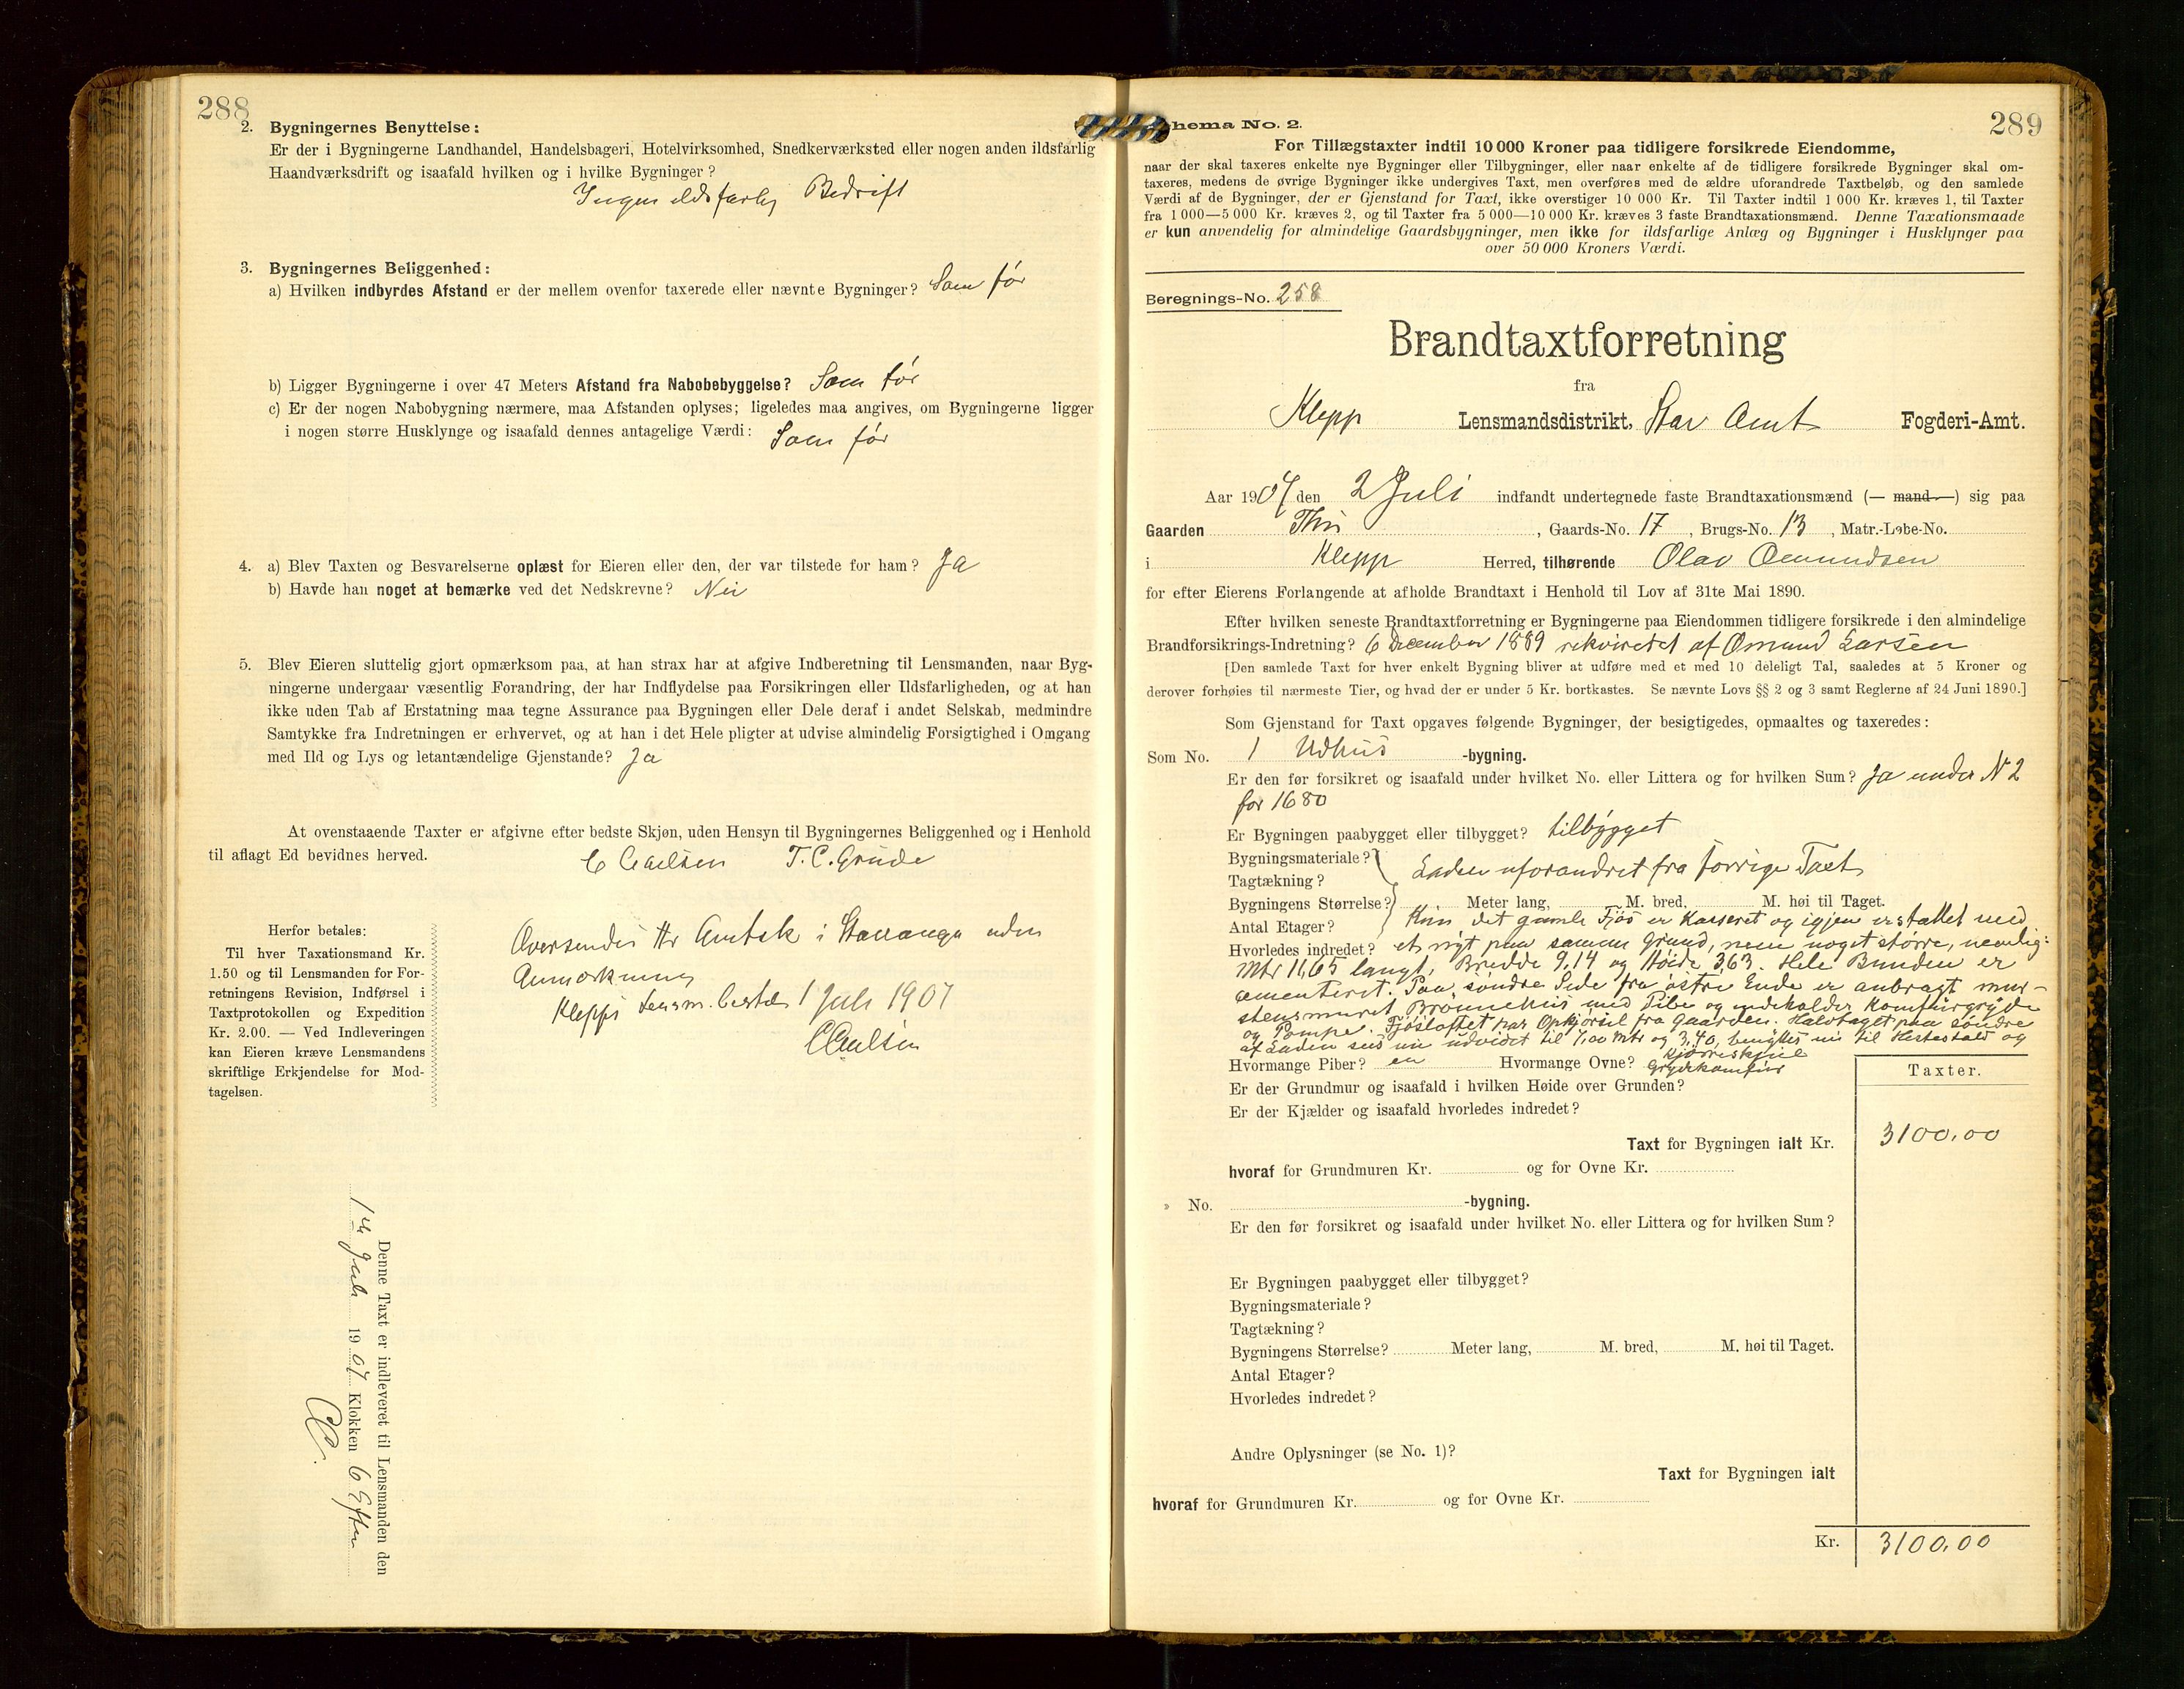 288
2. Bygningernes Benyttelse:
Er der i Bygningerne Landhandel, Handelsbageri, Hotelvirksomhed, Snedkerværksted eller nogen anden ildsfarlig
Haandværksdrift og isaafald hvilken og i hvilke Bygninger?
Ingen ildsfarlig Bedrift
3. Bygningernes Beliggenhed:
a) Hvilken indbyrdes Afstand er der mellem ovenfor taxerede eller nævnte Bygninger? Som før
b) Ligger Bygningerne i over 47 Meters Afstand fra Nabobebyggelse? Som før
c) Er der nogen Nabobygning nærmere, maa Afstanden oplyses; ligeledes maa angives, om Bygningerne ligger
i nogen større Husklynge og isaafald dennes antagelige Værdi: Som før
4. a) Blev Taxten og Besvarelserne oplæst for Eieren eller den, der var tilstede for ham? Ja
b) Havde han noget at bemærke ved det Nedskrevne? Nei
5. Blev Eieren sluttelig gjort opmærksom paa, at han strax har at afgive Indberetning til Lensmanden, naar Byg-
ningerne undergaar væsentlig Forandring, der har Indflydelse paa Forsikringen eller Ildsfarligheden, og at han
ikke uden Tab af Erstatning maa tegne Assurance paa Bygningen eller Dele deraf i andet Selskab, medmindre
Samtykke fra Indretningen er erhvervet, og at han i det Hele pligter at udvise almindelig Forsigtighed i Omgang
med Ild og Lys og letantændelige Gjenstande? Ja
At ovenstaaende Taxter er afgivne efter bedste Skjøn, uden Hensyn til Bygningernes Beliggenhed og i Henhold
til aflagt Ed bevidnes herved.
T. C. Grude
Herfor betales:
Til hver Taxationsmand Kr.
1.50 og til Lensmanden for For-
retningens Revision, Indførsel i
Taxtprotokollen og Expedition
Kr. 2.00. — Ved Indleveringen
kan Eieren kræve Lensmandens
skriftlige Erkjendelse for Mod-
tagelsen.
Oversendes Hr Amtsk i Stavanger uden
Anmærkning
Klepps Lensm. bestil 1 Juli 1907
Denne Taxt er indleveret til Lensmanden den
14 Juli 1907 Klokken 6 Efter
289
Schema No. 2.
For Tillægstaxter indtil 10 000 Kroner paa tidligere forsikrede Eiendomme,
naar der skal taxeres enkelte nye Bygninger eller Tilbygninger, eller naar enkelte af de tidligere forsikrede Bygninger skal om-
taxeres, medens de øvrige Bygninger ikke undergives Taxt, men overføres med de ældre uforandrede Taxtbeløb, og den samlede
Værdi af de Bygninger, der er Gjenstand for Taxt, ikke overstiger 10 000 Kr. Til Taxter indtil 1 000 Kr. kræves 1, til Taxter
fra 1 000—5 000 Kr. kræves 2, og til Taxter fra 5 000—10 000 Kr. kræves 3 faste Brandtaxationsmænd. Denne Taxationsmaade
er kun anvendelig for almindelige Gaardsbygninger, men ikke for ildsfarlige Anlæg og Bygninger i Husklynger paa
over 50 000 Kroners Værdi.
Beregnings-No. 258
Brandtaxtforretning
fra
Klepp Lensmandsdistrikt, Stav Amt Fogderi-Amt.
Aar 1907 den 2 Juli indfandt undertegnede faste Brandtaxationsmænd (— mand —) sig paa
Gaarden Thu, Gaards-No. 17, Brugs-No. 13, Matr.-Løbe-No.
i Klepp Herred, tilhørende Olav Omundsen
for efter Eierens Forlangende at afholde Brandtaxt i Henhold til Lov af 31te Mai 1890.
Efter hvilken seneste Brandtaxtforretning er Bygningerne paa Eiendommen tidligere forsikrede i den almindelige
Brandforsikrings-Indretning? 6 December 1889 rekvireret af Omund Larsen
[Den samlede Taxt for hver enkelt Bygning bliver at udføre med et med 10 deleligt Tal, saaledes at 5 Kroner og
derover forhøies til nærmeste Tier, og hvad der er under 5 Kr. bortkastes. Se nævnte Lovs §§ 2 og 3 samt Reglerne af 24 Juni 1890.]
Som Gjenstand for Taxt opgaves følgende Bygninger, der besigtigedes, opmaaltes og taxeredes:
Som No. 1 Udhus -bygning.
Er den før forsikret og isaafald under hvilket No. eller Littera og for hvilken Sum? Ja under N 2
for 1680
Er Bygningen paabygget eller tilbygget? tilbygget
Bygningsmateriale?
Tagtækning? Laden uforandret fra forrige Taxt
Bygningens Størrelse? Meter lang, M. bred, M. høi til Taget.
Antal Etager? Kun det gamle Fjøs er Kasseret og igjen erstattet med
Hvorledes indredet? et nyt paa samme Grund, men noget større, nemlig:
Mtr 11,65 langt, Bredde 9,14 og Høide 3,63. Hele Bunden er
cementeret. Paa søndre Side fra østre Ende er anbragt mur-
stensmuret Brønnehus med Pibe og indeholder Komfurgryde
og Pumpe. Fjøsloftet har Opkjørsel fra Gaarden. Halvtaget paa søndre
af Laden sees nu udvidet til 7,00 Mtr og 3,40, benyttes nu til Hestestald og
Kjørreskjul
Hvormange Piber? en Hvormange Ovne? Grydekomfur
Er der Grundmur og isaafald i hvilken Høide over Grunden?
Er der Kjælder og isaafald hvorledes indredet?
Taxter.
Taxt for Bygningen ialt Kr. 3100,00
hvoraf for Grundmuren Kr. og for Ovne Kr.
» No. -bygning.
Er den før forsikret og isaafald under hvilket No. eller Littera og for hvilken Sum?
Er Bygningen paabygget eller tilbygget?
Bygningsmateriale?
Tagtækning?
Bygningens Størrelse? Meter lang, M. bred, M. høi til Taget.
Antal Etager?
Hvorledes indredet?
Andre Oplysninger (se No. 1)?
Taxt for Bygningen ialt
hvoraf for Grundmuren Kr. og for Ovne Kr.
Kr. 3100,00